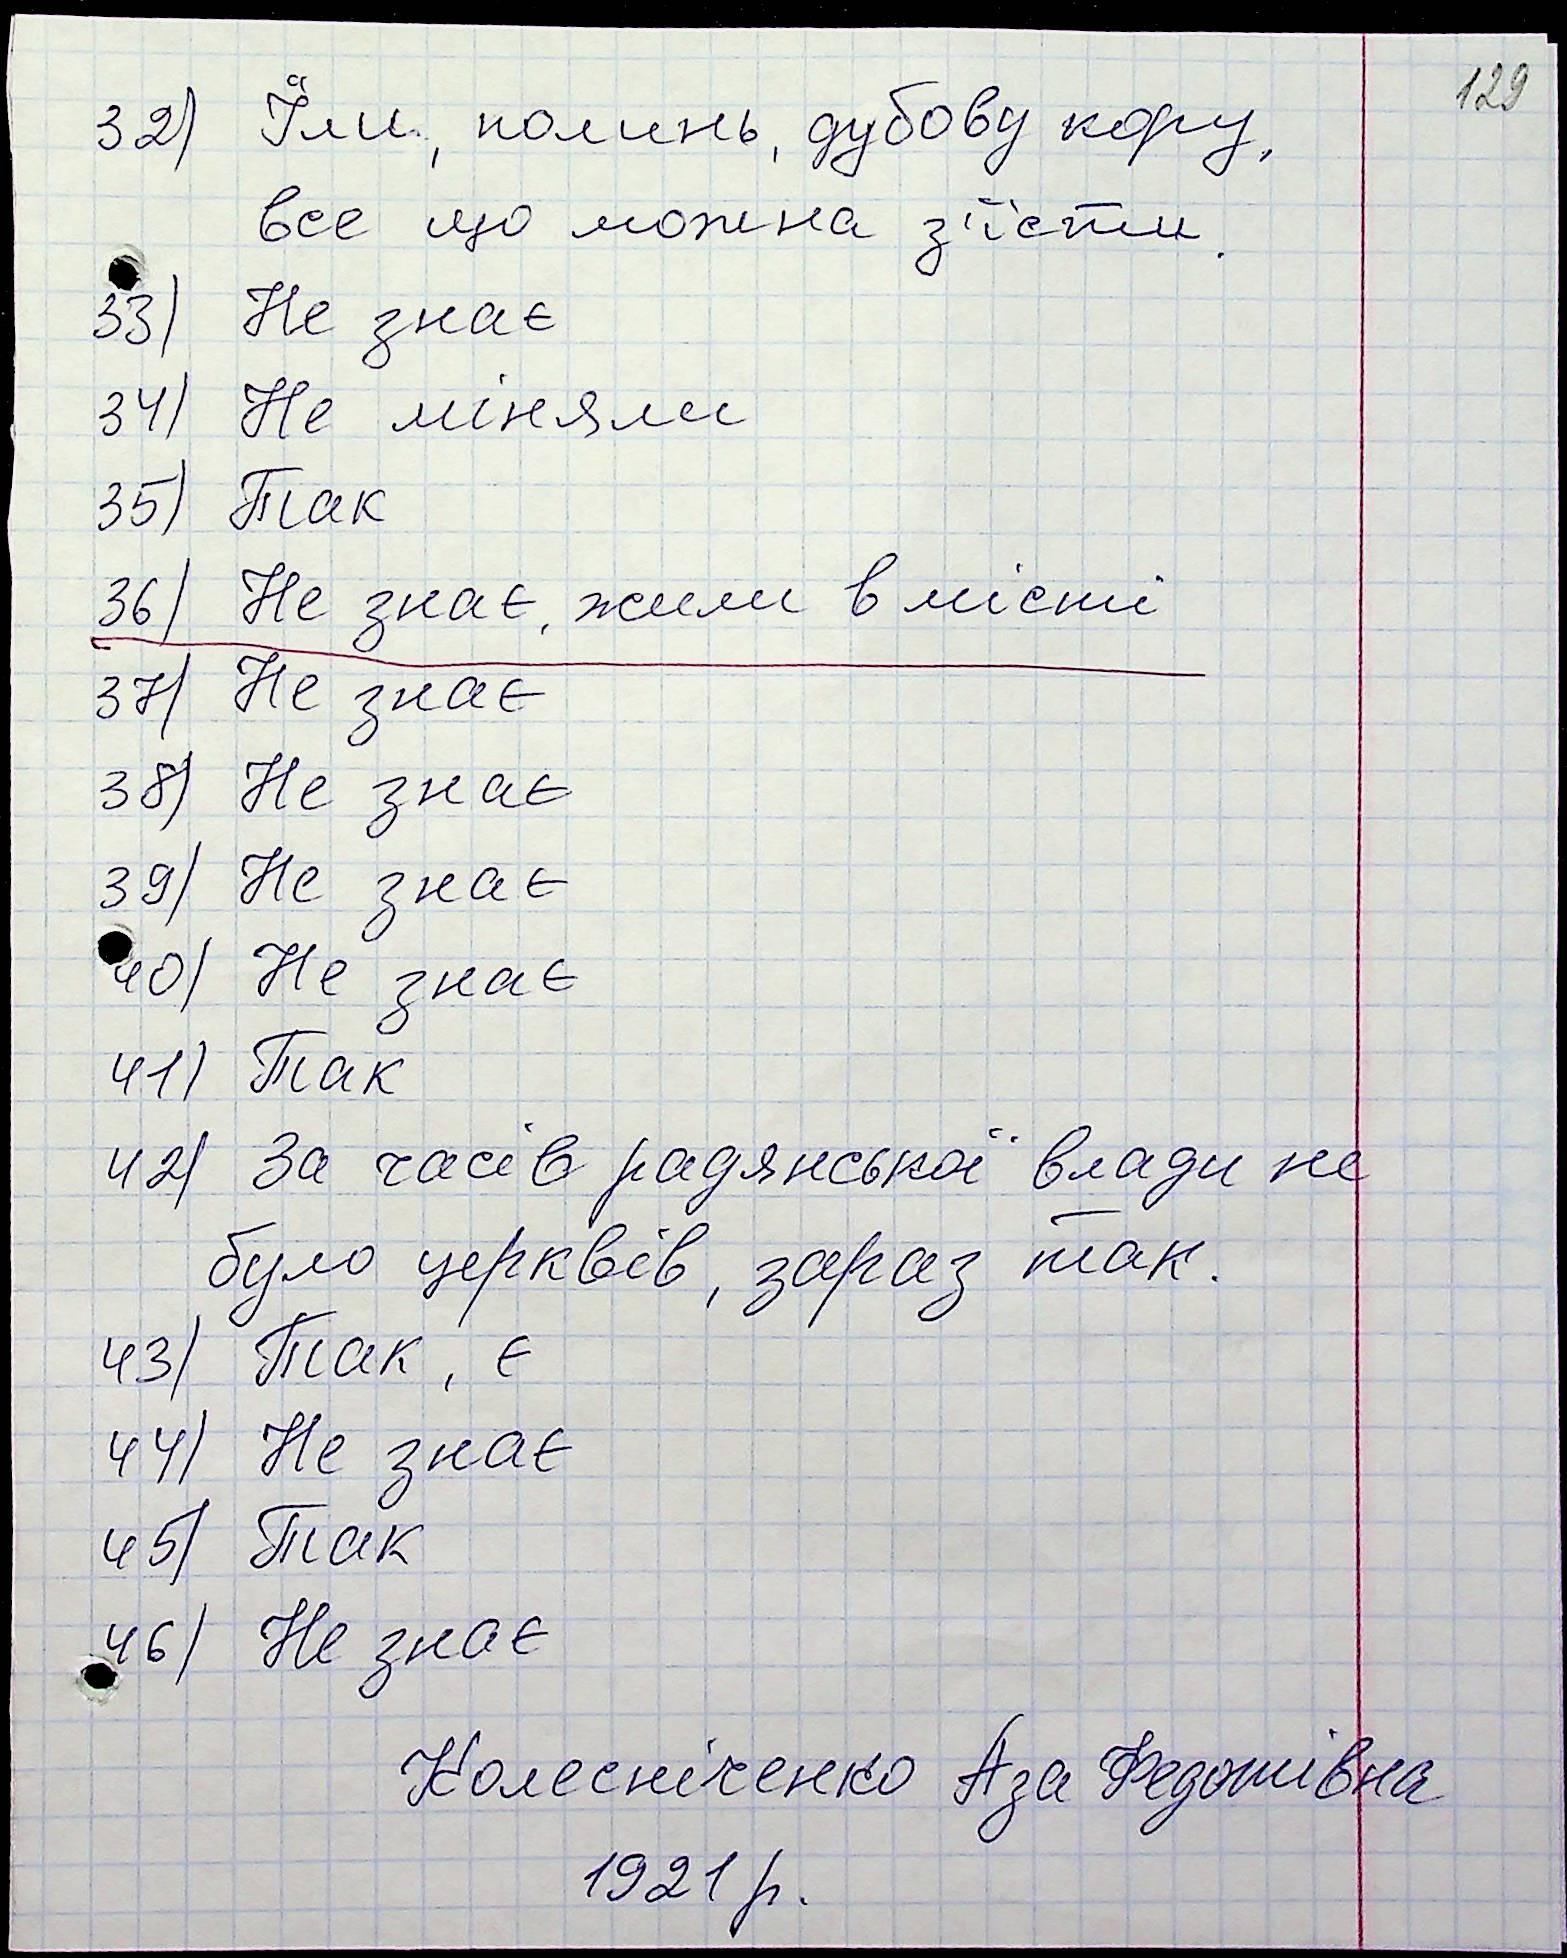 129
32) Їли, полинь, дубову кору,
все що можна з'їсти.
33) Не знає
34) Не міняли
35) Так
36) Не знає, жили в місті
37) Не знає
38) Не знає
39) Не знає
40) Не знає
41) Так
42) За часів радянської влади не
було церквів, зараз так.
43) Так, є
44) Не знає
45) Так
46) Не знає
Колесніченко Аза Федотівна
1921 р.